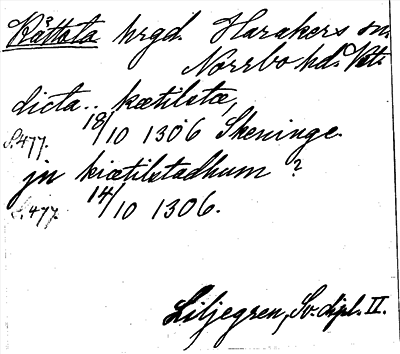 Kättsta hrgd. Harakers sn.
Norrbo hd. Vstm.
dicta.. kætilstæ,
S.477. 18/10 1306 Skeninge.
jn kiætilstadhum?
S.477 14/10 1306.
Liljegren, Sv. dipl. II.